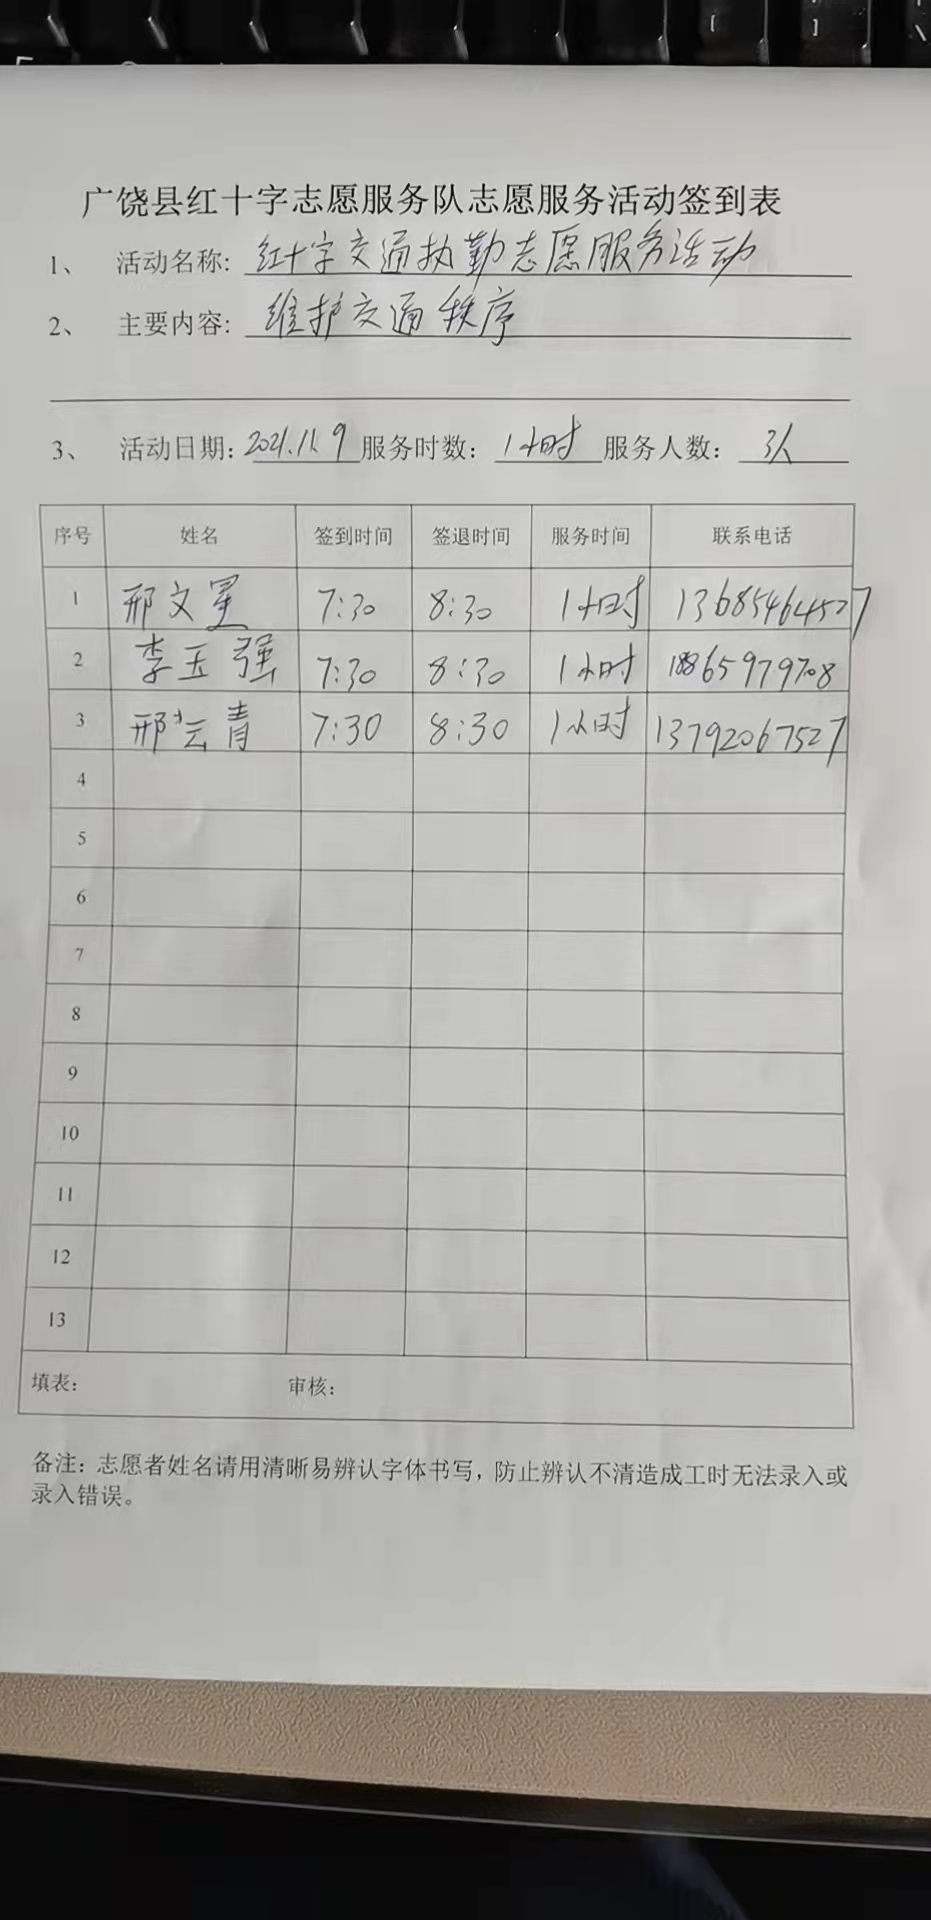 广饶县红十字志愿服务队志愿服务活动签到表
1、 活动名称: 红十字交通执勤志愿服务活动
2、 主要内容: 维护交通秩序
3、 活动日期: 2021.11.9 服务时数: 1小时 服务人数: 3人
序号 姓名 签到时间 签退时间 服务时间 联系电话
1 邢文星 7:30 8:30 1小时 13685464527
2 李玉强 7:30 8:30 1小时 18865979708
3 邢云青 7:30 8:30 1小时 13792067527
4
5
6
7
8
9
10
11
12
13
填表: 审核:
备注: 志愿者姓名请用清晰易辨认字体书写，防止辨认不清造成工时无法录入或
录入错误。